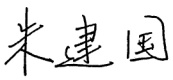 朱建国